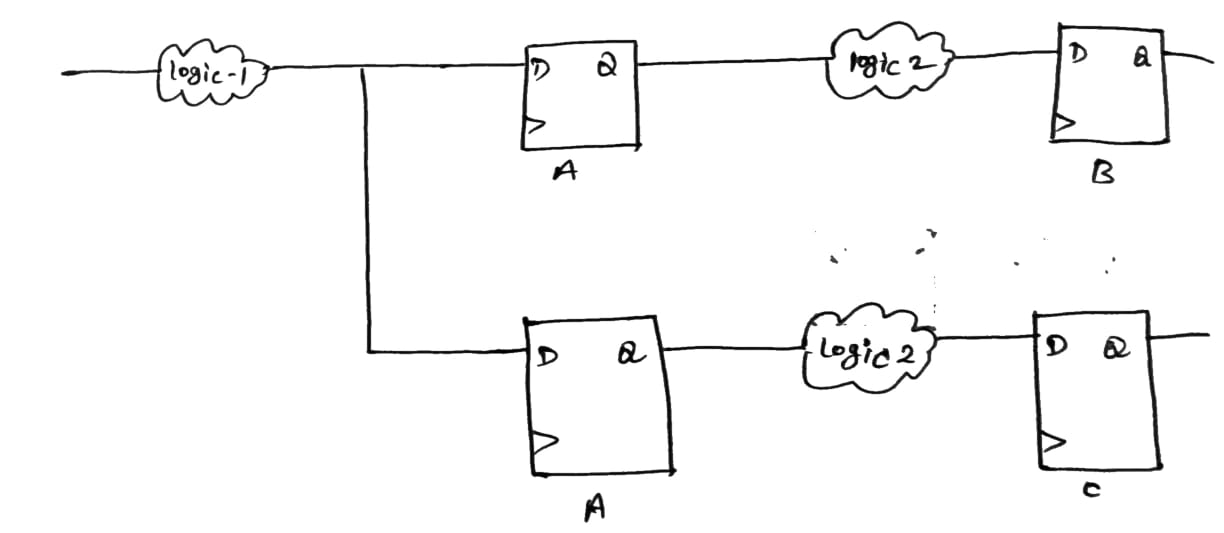 logic-1
D Q
A
logic 2
D Q
B
D Q
A
Logic 2
D Q
C